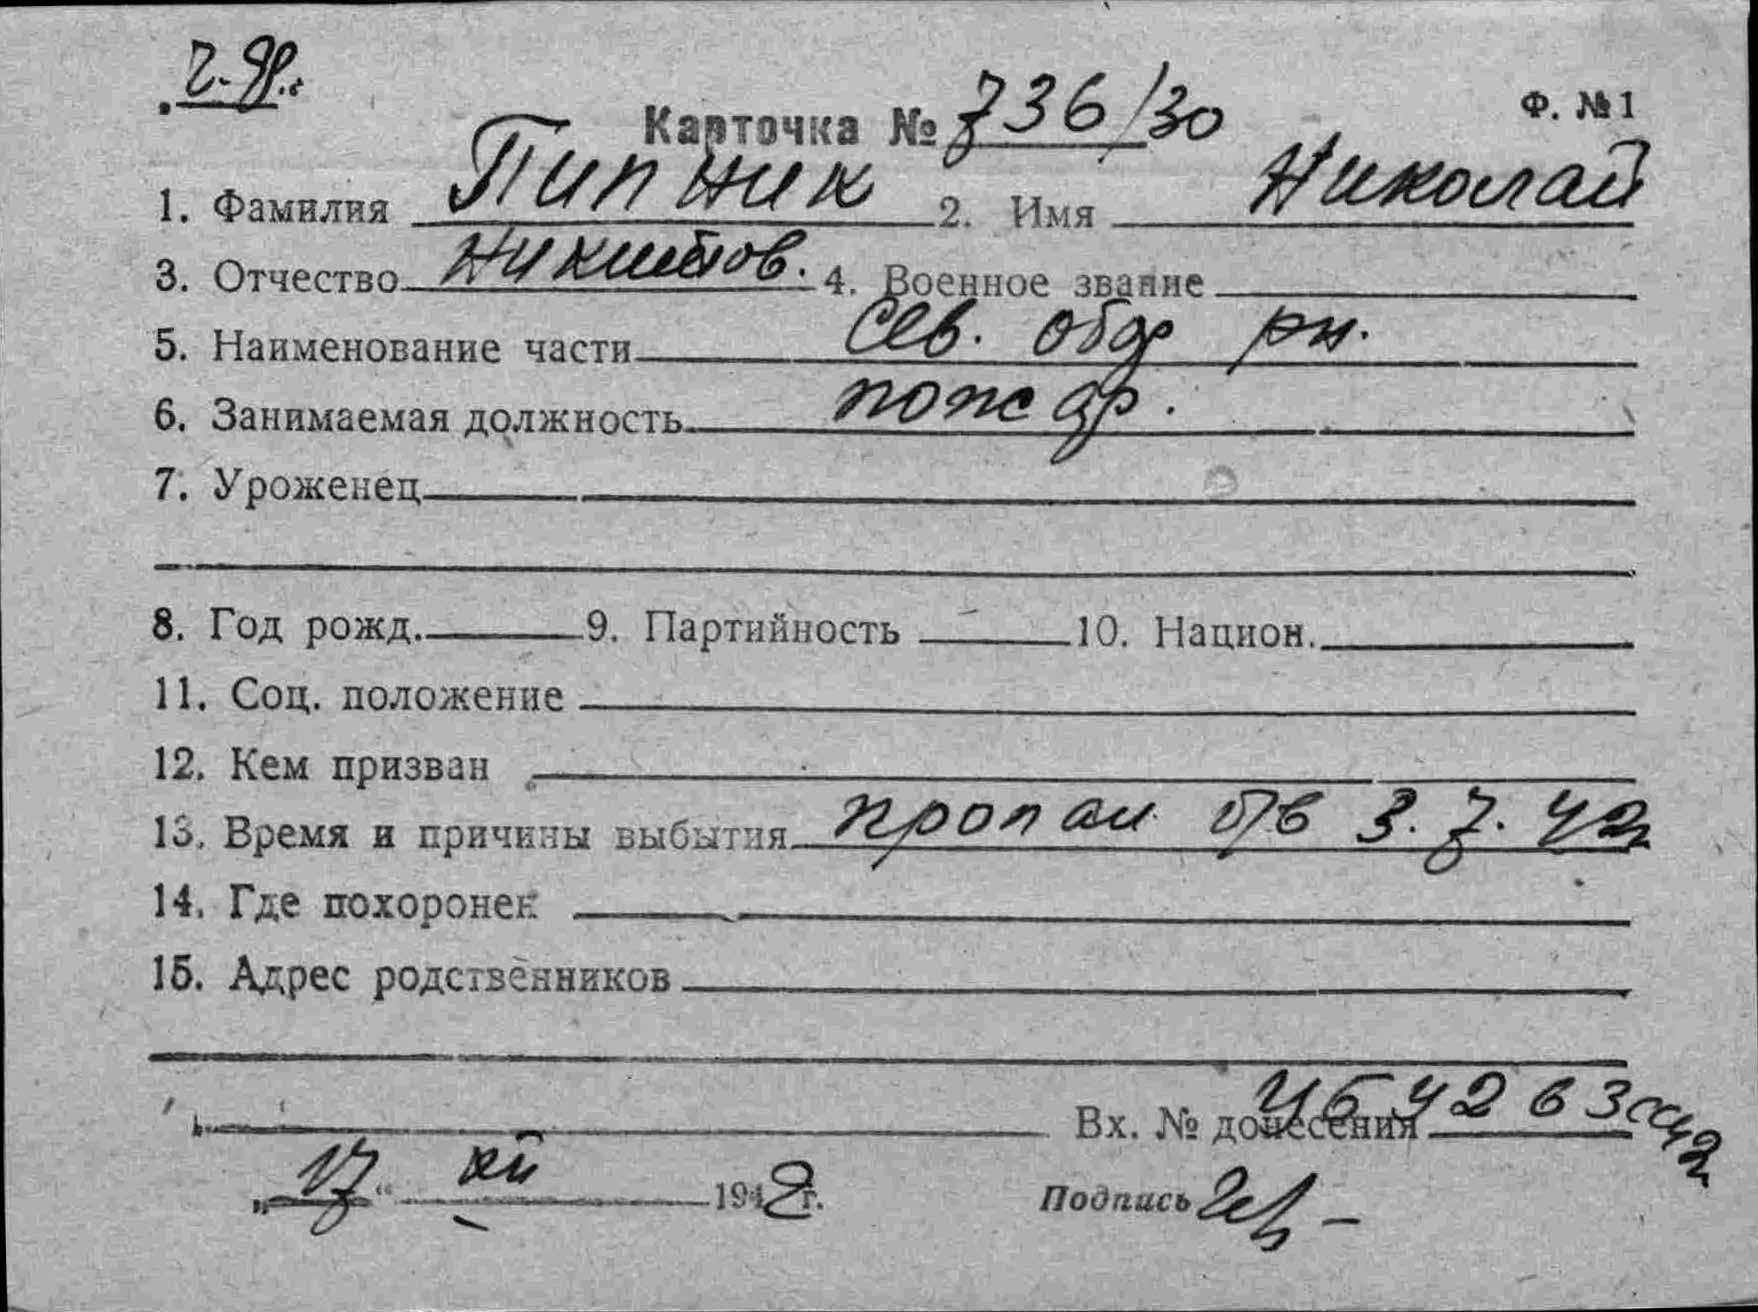 Ф. № 1
Карточка № 736/30
1. Фамилия Пипник 2. Имя Николай
3. Отчество Никитов. 4. Военное звание
5. Наименование части Сев. обор рн.
6. Занимаемая должность пожар.
7. Уроженец
8. Год рожд. 9. Партийность 10. Национ.
11. Соц. положение
12. Кем призван
13. Время и причины выбытия пропал б/в 3.7.42
14. Где похоронен
15. Адрес родственников
Вх. № донесения
„17“ XII 1942 г. Подпись